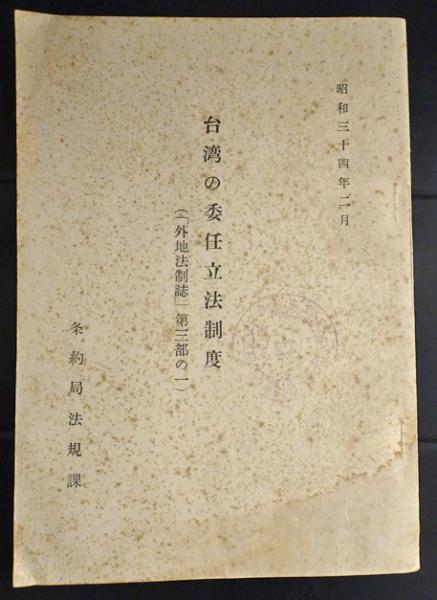 昭和三十四年二月
台湾の委任立法制度
(「外地法制誌」第三部の一)
条約局法規課